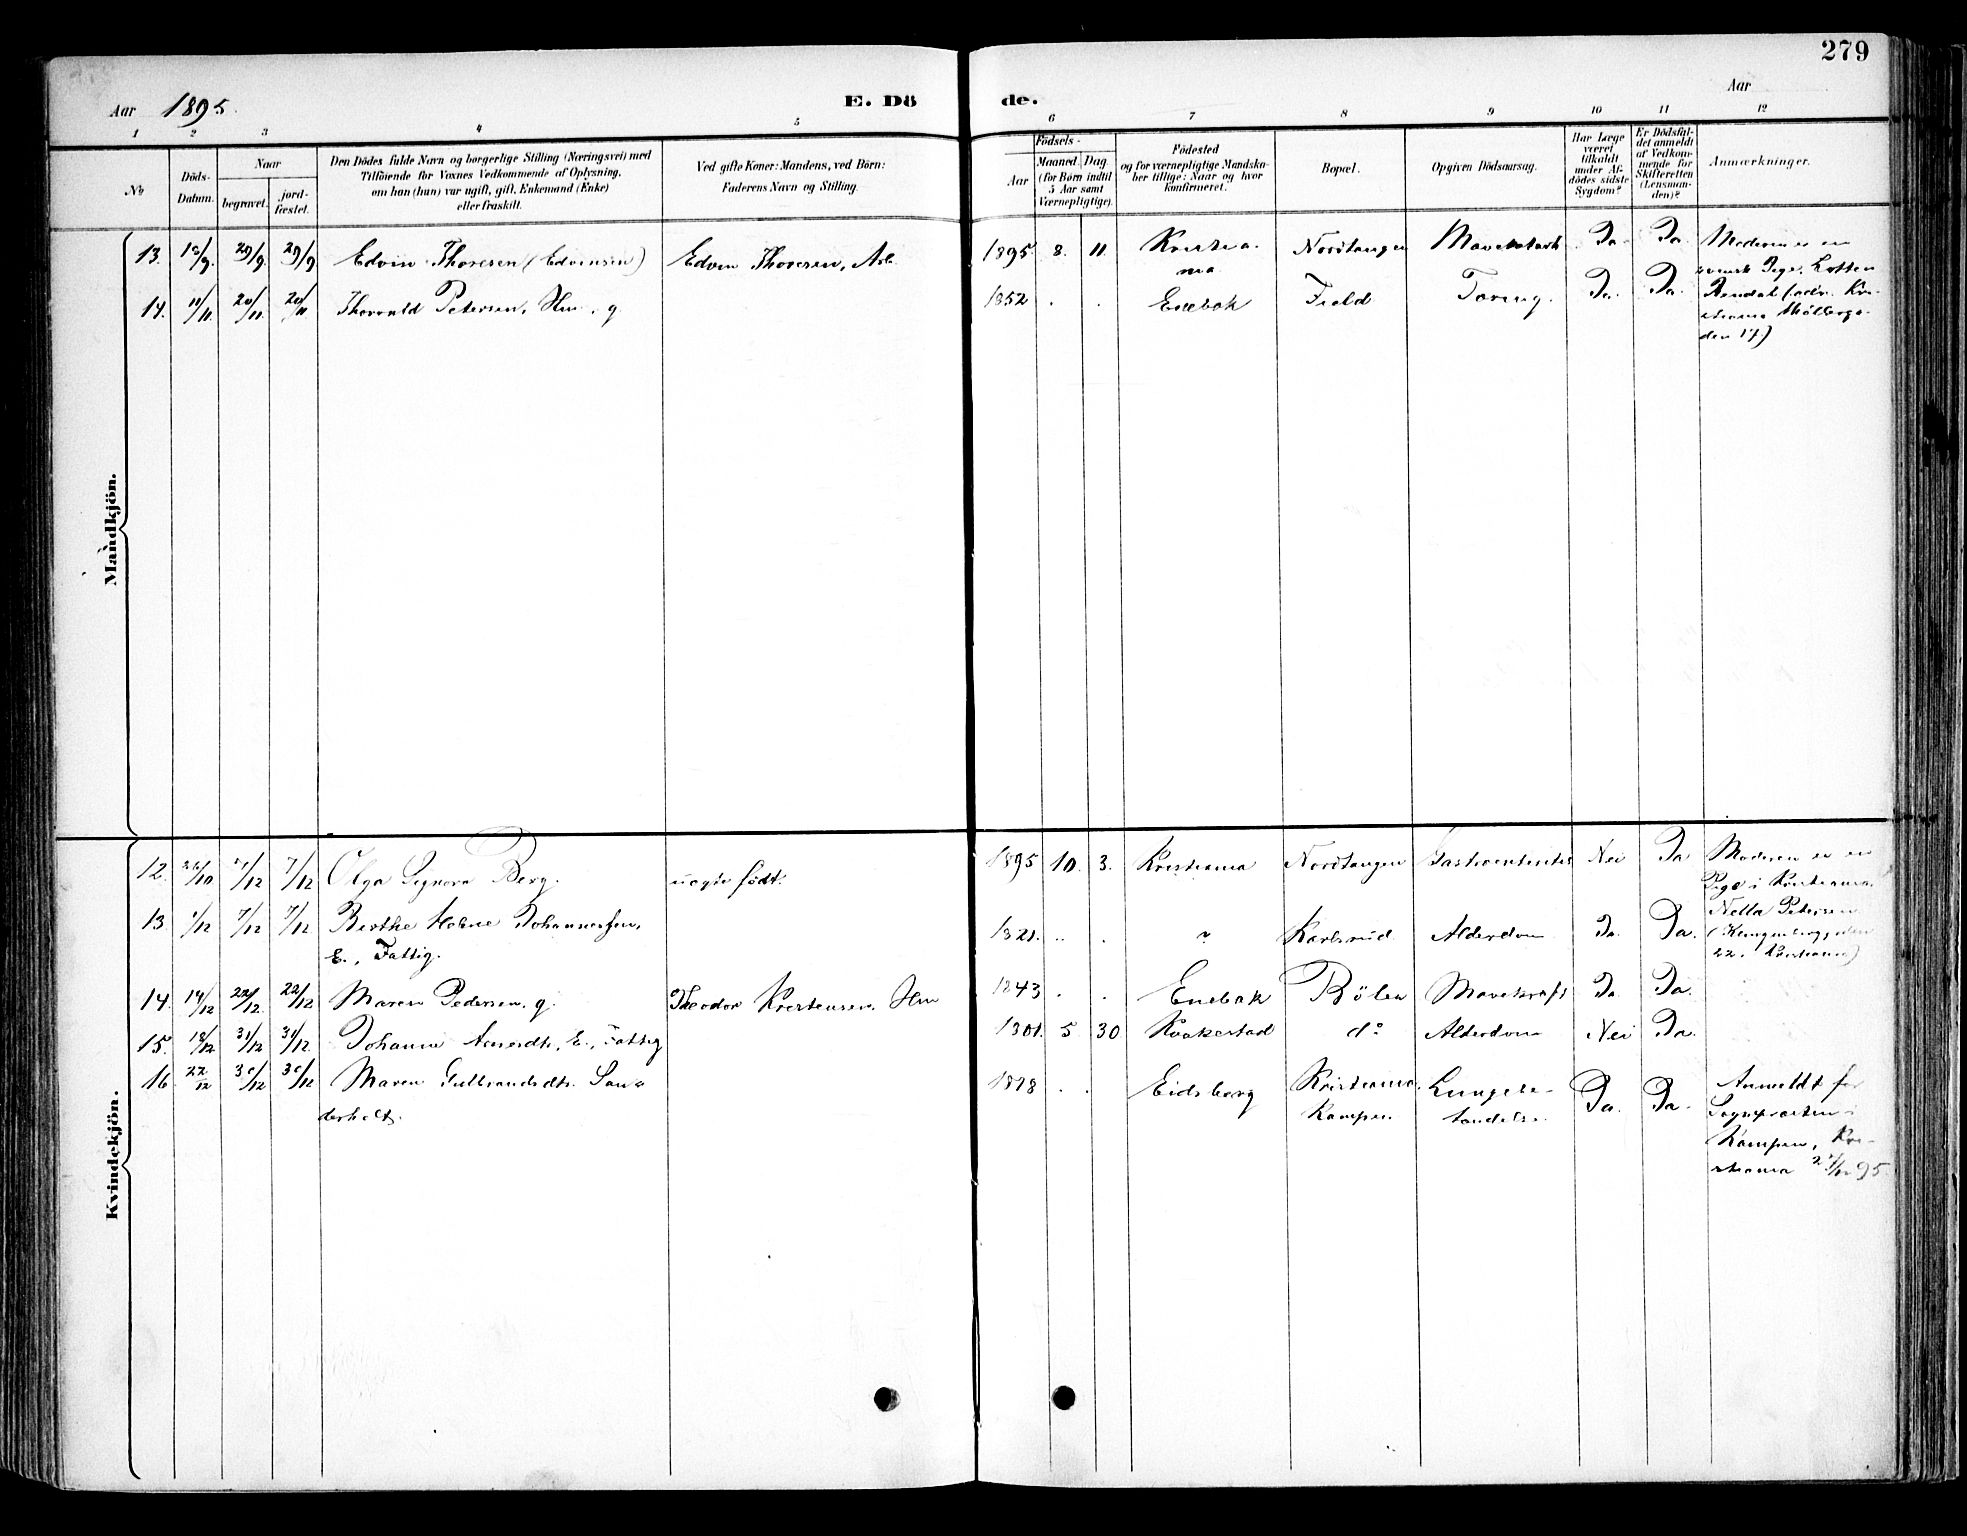 279
Aar 1895.
E. Dö
de.
Aar
1 2 3 4 5 6 7 8 9 10 11 12
No
Döds-Datum.
Naar
begravet.
jord-fæstet.
Den Dödes fulde Navn og borgerlige Stilling (Næringsvei) med
Tilföiende for Voxnes Vedkommende af Oplysning,
om han (hun) var ugift, gift, Enkemand (Enke)
eller fraskilt.
Ved gifte Koner: Mandens, ved Börn:
Faderens Navn og Stilling.
Födsels-
Aar
Maaned. Dag.
(for Børn indtil
5 Aar samt
Værnepligtige).
Födested
og for værnepligtige Mandska-
ber tillige: Naar og hvor
konfirmeret.
Bopæl.
Opgiven Dödsaarsag.
Har Læge
været
tilkaldt
under Af-
dödes sidste
Sygdom?
Er Dödsfal-
det anmeldt
af Vedkom-
mende for
Skifteretten
(Lensman-
den)?
Anmærkninger.
Mandkjön.
13. 29/9 29/9 Edvin Thoresen (Edvinsen) Edvin Thoresen, Arb. 1895 8. 11 Kristia Nordtangen Ja. Ja. Moderen er en
nia svensk Pige, Lotten
14. 11/11 20/11 20/11 Thorvald Petersen, Hm., g. 1852 . . Enebak Fjeld Tæring. Ja. Ja. Rendal (adr. Kri-
stiania Møllerga-
den 17)
Kvindekjön.
12. 7/12 7/12 Olga Signora Berg. uægte født. 1895 10. 3. Kristiania Nordtangen Gastroenterites Nei Ja Moderen er en
Pige i Kristiania.
13. 1/12 7/12 7/12 Berthe Helene Johannessen, 1821. . . ? Karlsrud Alderdom Ja. Ja. Netta Petersen
E., Fattig. 22. Kristiania)
14. 14/12 22/12 22/12 Maren Pedersen, g. Theodor Kristensen, Hm 1843 . . Enebak Böler Ja. Ja.
15. 18/12 31/12 31/12 Johanne E., Fattig 1801. 5 30 Kraakstad do Alderdom Nei Ja.
16. 22/12 30/12 30/12 Maren Gulbrandsdtr. San- 1878 . . Eidsberg Kristiania, Lungebe- Ja. Ja. Anmeldt for
derholt. Kampen tændelse. Sognepræsten i
Kampen, Kri-
stiania 95.